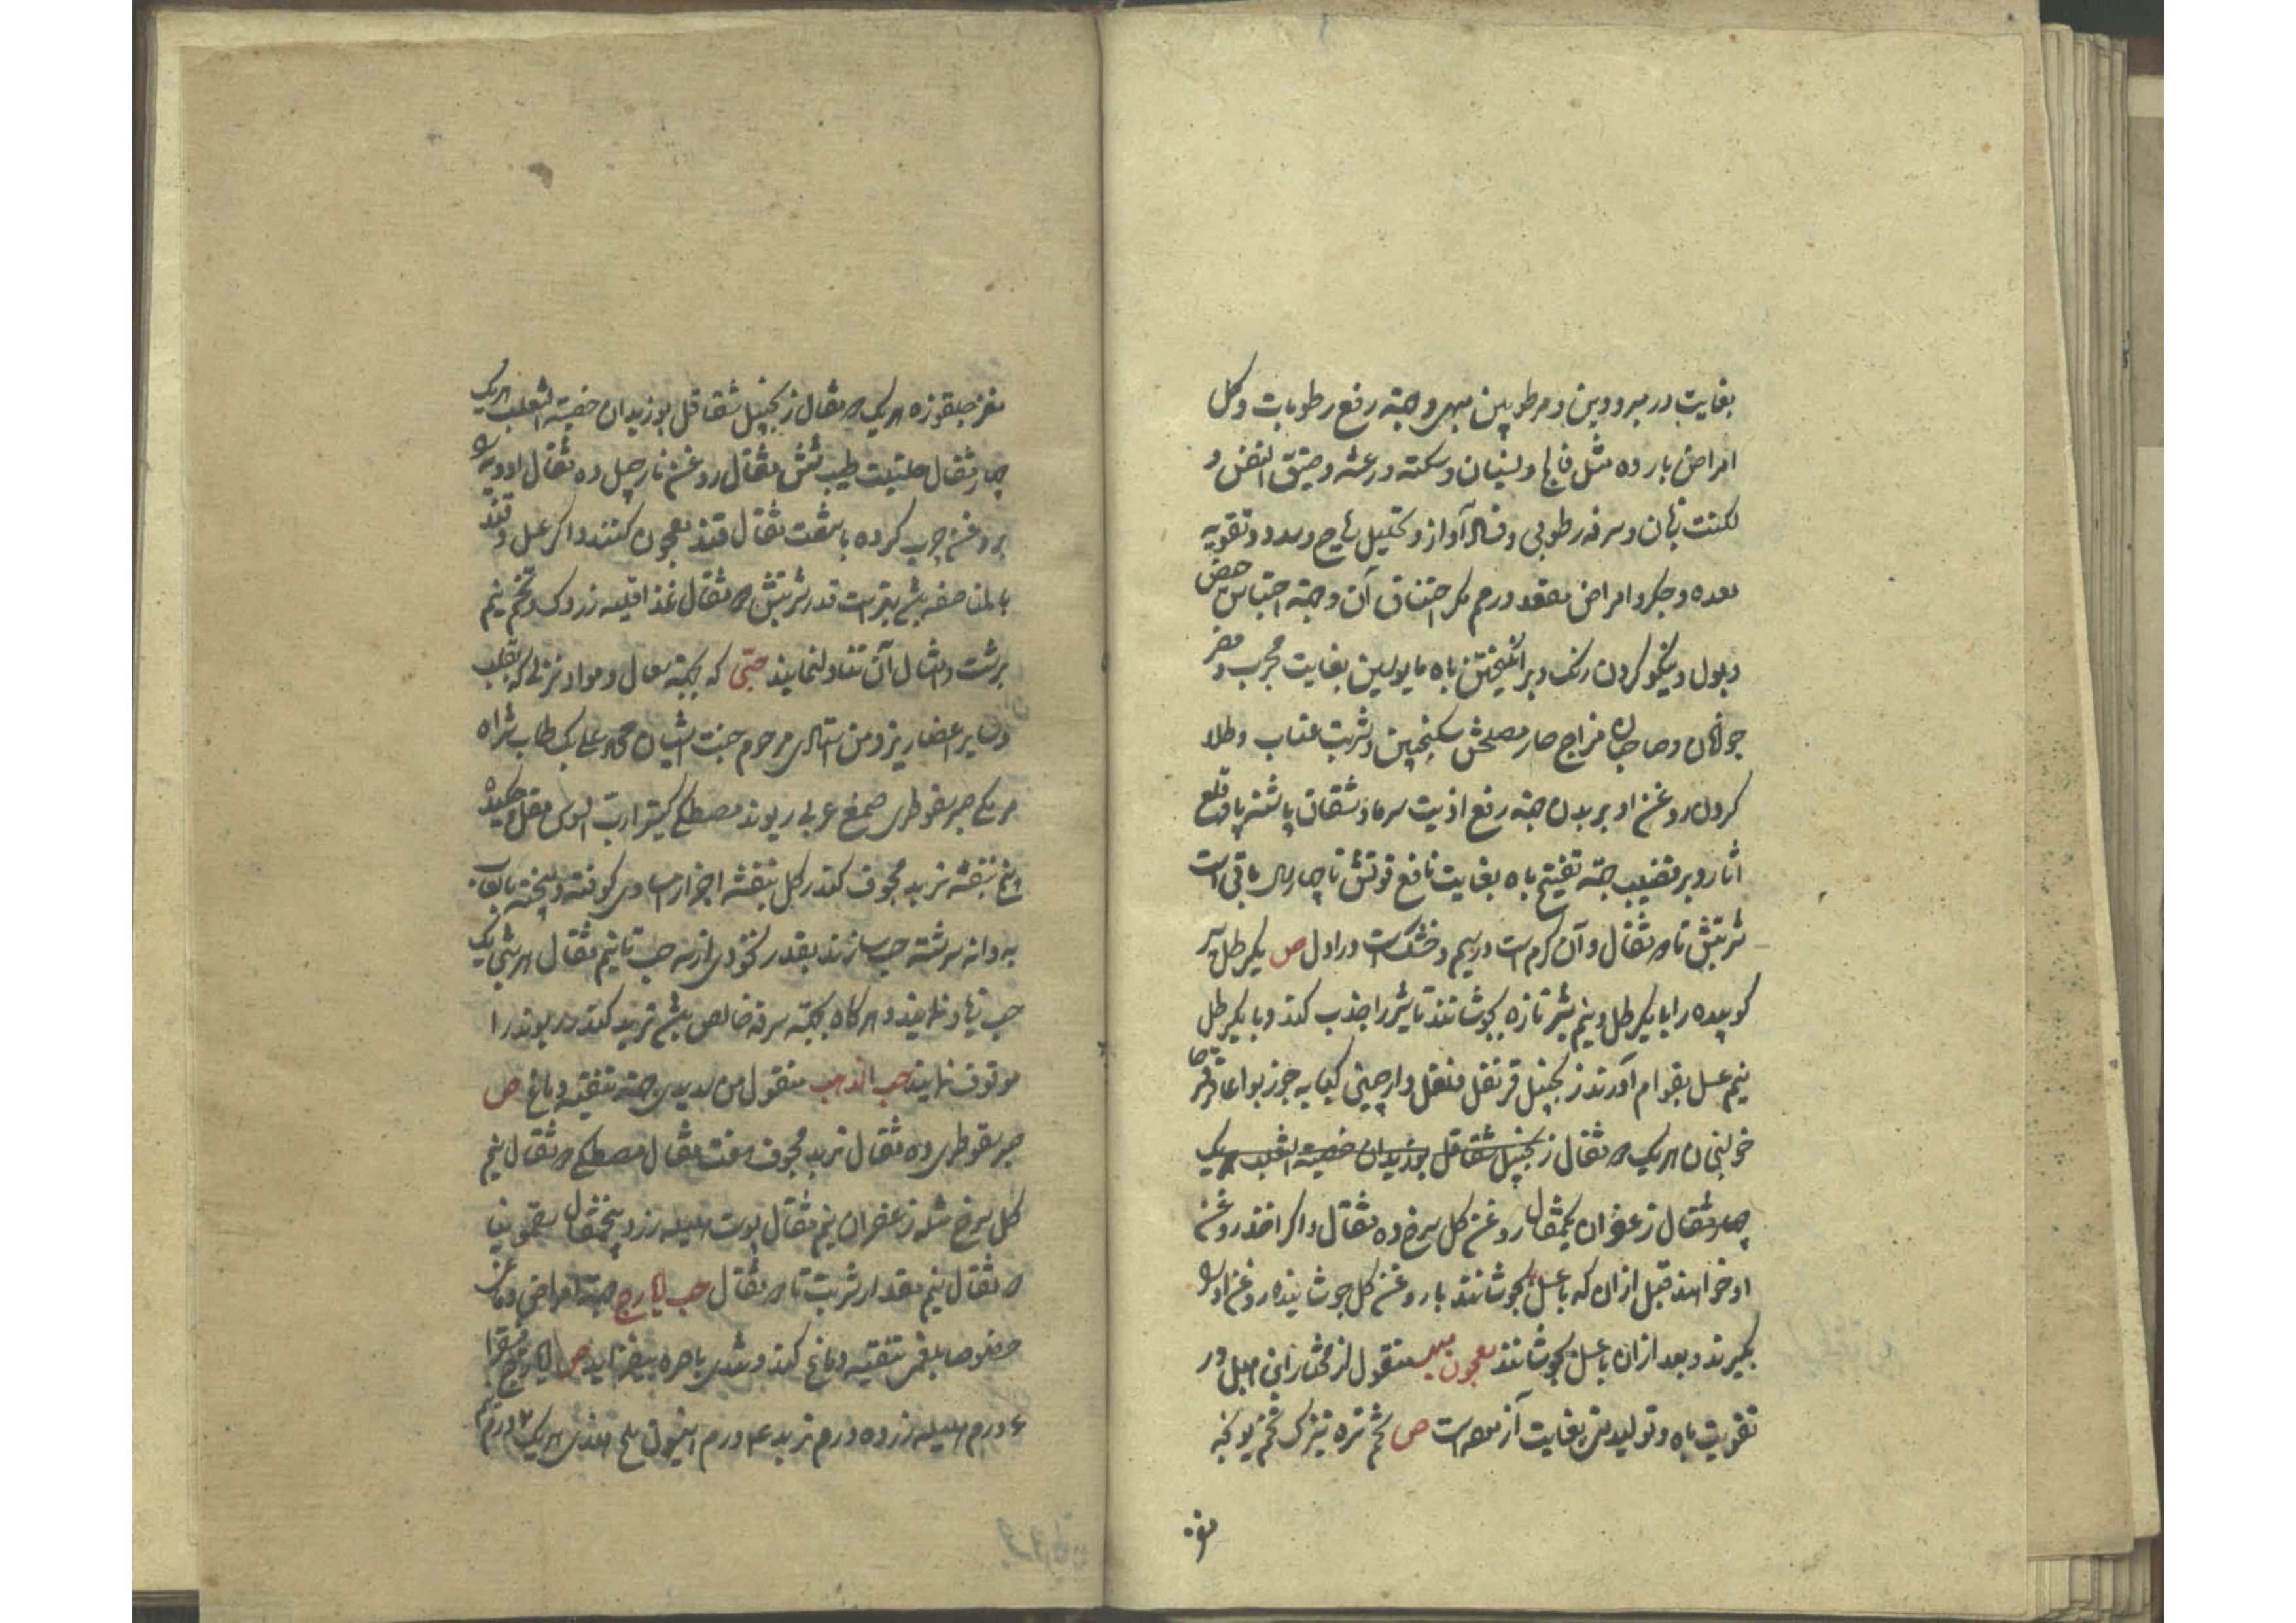 بغایت در مبرودین و مرطوبین مبهی و جهة رفع رطوبات و کل
امراض بارده مثل فالج و نسیان و سکته و رعشه و ضیق النفس و
لکنت زبان و سرفه رطوبی و فساد آواز و تحلیل ریاح و سدد و تقویه
معده و جکر و امراض مقعد و رحم مکر اختناق آن و جهة احتباس حیض
و بول و نیکو کردن رنک و برانکیختن باه مایوسین بغایت مجرب و مضر
جوانان و صاحبان مزاج حار مصلحش سکنجبین و شربت عناب و طلا
کردن روغن او بر بدن جهة رفع اذیت سرما و شقاق پاشنه پا و قلع
آثار و بر قضیب جهة تفتیح باه بغایت نافع قوتش تا چهار سال باقی است
شربتش تا ۳ مثقال و آن کرم است در سیم و خشک است در اول ص یکرطل سیر
کوبیده را با یکرطل و نیم شیر تازه بجوشانند تا شیر را جذب کند و با یکرطل
نیم عسل بقوام آورند زنجبیل قرنفل فلفل دارچینی کبابه جوزبوا عاقرقرحا
خولنجان هریک ۳ مثقال زنجبیل شقاقل بوزیدان خصیة الثعلب هریک
چهار مثقال زعفران یکمثقال روغن کل سرخ ده مثقال و اکر اخذ روغن
او خواهند قبل از آن که با عسل بجوشانند با روغن کل جوشانیده روغن او را
بکیرند و بعد از آن با عسل بجوشانند معجون مبهی منقول از مختار ابن هبل در
تقویت باه و تولید منی بغایت آزموده است ص تخم تره تیزک تخم یونجه
مغز
مغز جلقوزه هریک ۳ مثقال زنجبیل شقاقل بوزیدان خصیة الثعلب هریک
چهار مثقال حلتیت طیب شش مثقال روغن نارجیل ده مثقال ادویه را
بروغن چرب کرده با شصت مثقال قند معجون کنند و اکر عسل و قند
بالمناصفه باشد بهتر است قدر شربتش ۳ مثقال غذا قلیه زردک و تخم نیم
برشت و امثال آن تناول نمایند حبّی که بجهة سعال و مواد نزلی که بقلب
و سایر اعضا ریزد من استادی مرحوم جنت آشیان محمد علی بک طاب ثراه
مر مکی صبر سقوطری صمغ عربی ریوند مصطکی کتیرا رب السوس مقل چکیده
و بیخ بنفشه تربد مجوف کندر کل بنفشه اجزا مساوی کوفته و بیخته بلعاب
به دانه سرشته حب سازند بقدر نخودی از سه حب تا نیم مثقال هر شب یک
حب زیاد نمایند و هرکاه بجهة سرفه خالص باشد تربد کندر ریوند را
موقوف نمایند حب الذهب منقول من سدیدی جهة تنقیه دماغ ص
صبر سقوطری ده مثقال تربد مجوف هفت مثقال مصطکی ۳ مثقال نیم
کل سرخ مثله زعفران نیم مثقال پوست هلیله زرد پنجمثقال سقمونیا
۳ مثقال نیم مقدار شربت تا ۳ مثقال حب ایارج جهة امراض دماغی
خصوصا بلغمی تنقیه دماغ کند و شدی باصره بیفزاید ص ایارج فیقرا
۶ درم هلیله زرد ده درم تربد ۴ درم انیسون ملح هندی هریک ۲ درم نیم